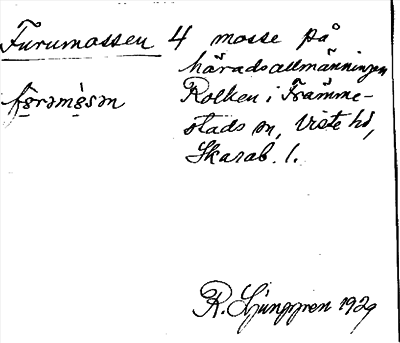 Furumossen 4 mosse på
häradsallmänningen
Rolken i Främme-
stads sn, Viste hd,
Skarab. l.
fɵ̀rəmɵ̀sən
R. Ljunggren 1929